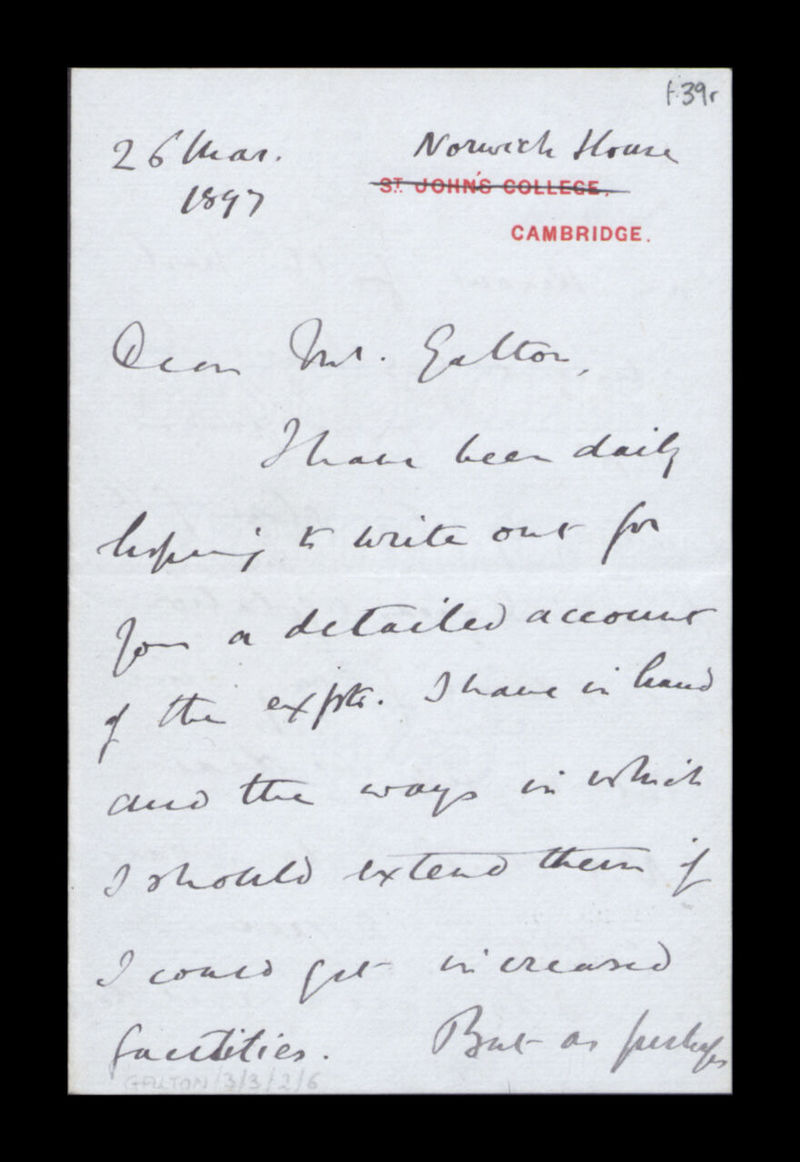 f.39r
26 Mar. Norwich House
1897 ST. JOHN'S COLLEGE.
CAMBRIDGE.
Dear Mr. Galton,
I have been daily
hoping to write out for
you a detailed account
of the expts. I have in hand
and the ways in which
I should extend them if
I could get increased
facilities. But as perhaps
GALTON/3/3/2/6